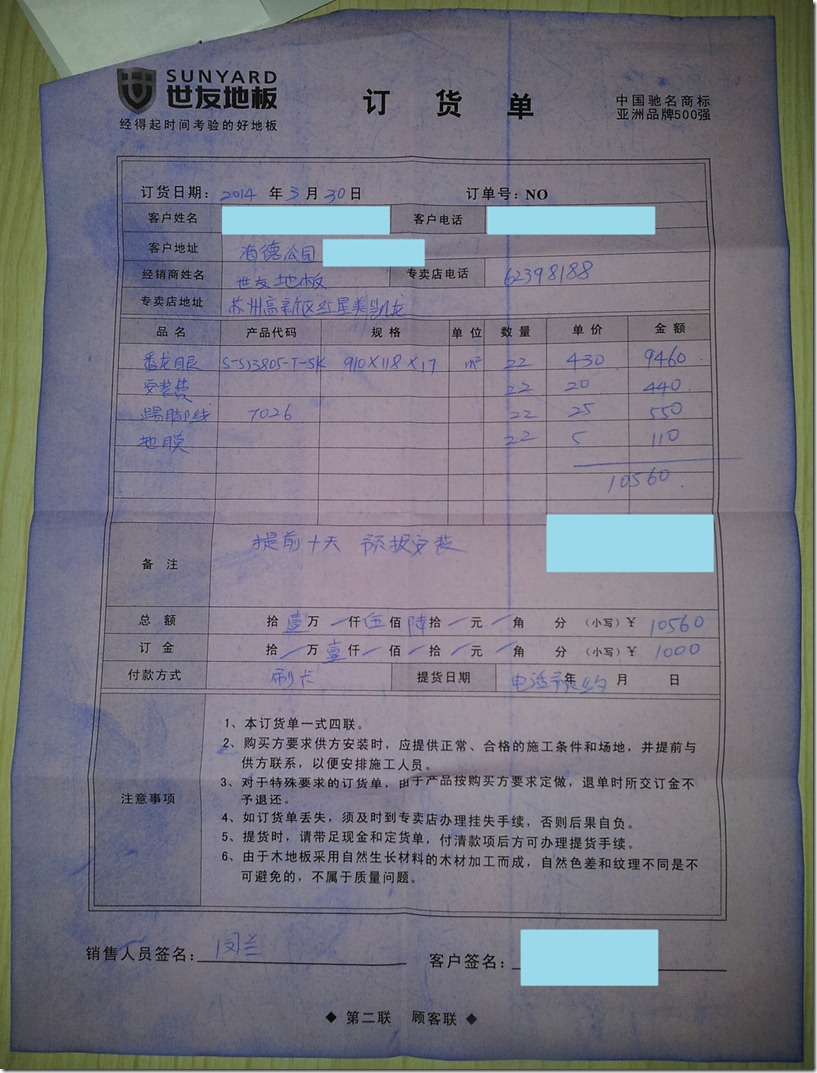 SUNYARD
世友地板
经得起时间考验的好地板
订货单
中国驰名商标
亚洲品牌500强
订货日期: 2014 年 3 月 30 日 订单号: NO
客户姓名 客户电话
客户地址 海德公园
经销商姓名 世友地板 专卖店电话 62398188
专卖店地址 苏州高新区红星美凯龙
品名 产品代码 规格 单位 数量 单价 金额
番龙眼 S-S13805-T-SK 910×118×17 m² 22 430 9460.
安装费 22 20 440.
踢脚线 7026 22 25 550
地膜 22 5 110
10560.
备注 提前十天 预报安装
总额 拾 壹 万 / 仟 伍 佰 陆 拾 / 元 / 角 分 (小写) ¥ 10560
订金 拾 / 万 壹 仟 / 佰 / 拾 / 元 / 角 分 (小写) ¥ 1000
付款方式 刷卡 提货日期 电话预约 年 月 日
注意事项
1、本订货单一式四联。
2、购买方要求供方安装时，应提供正常、合格的施工条件和场地，并提前与
供方联系，以便安排施工人员。
3、对于特殊要求的订货单，由于产品按购买方要求定做，退单时所交订金不
予退还。
4、如订货单丢失，须及时到专卖店办理挂失手续，否则后果自负。
5、提货时，请带足现金和定货单，付清款项后方可办理提货手续。
6、由于木地板采用自然生长材料的木材加工而成，自然色差和纹理不同是不
可避免的，不属于质量问题。
销售人员签名: 闵兰 客户签名:
◆ 第二联 顾客联 ◆